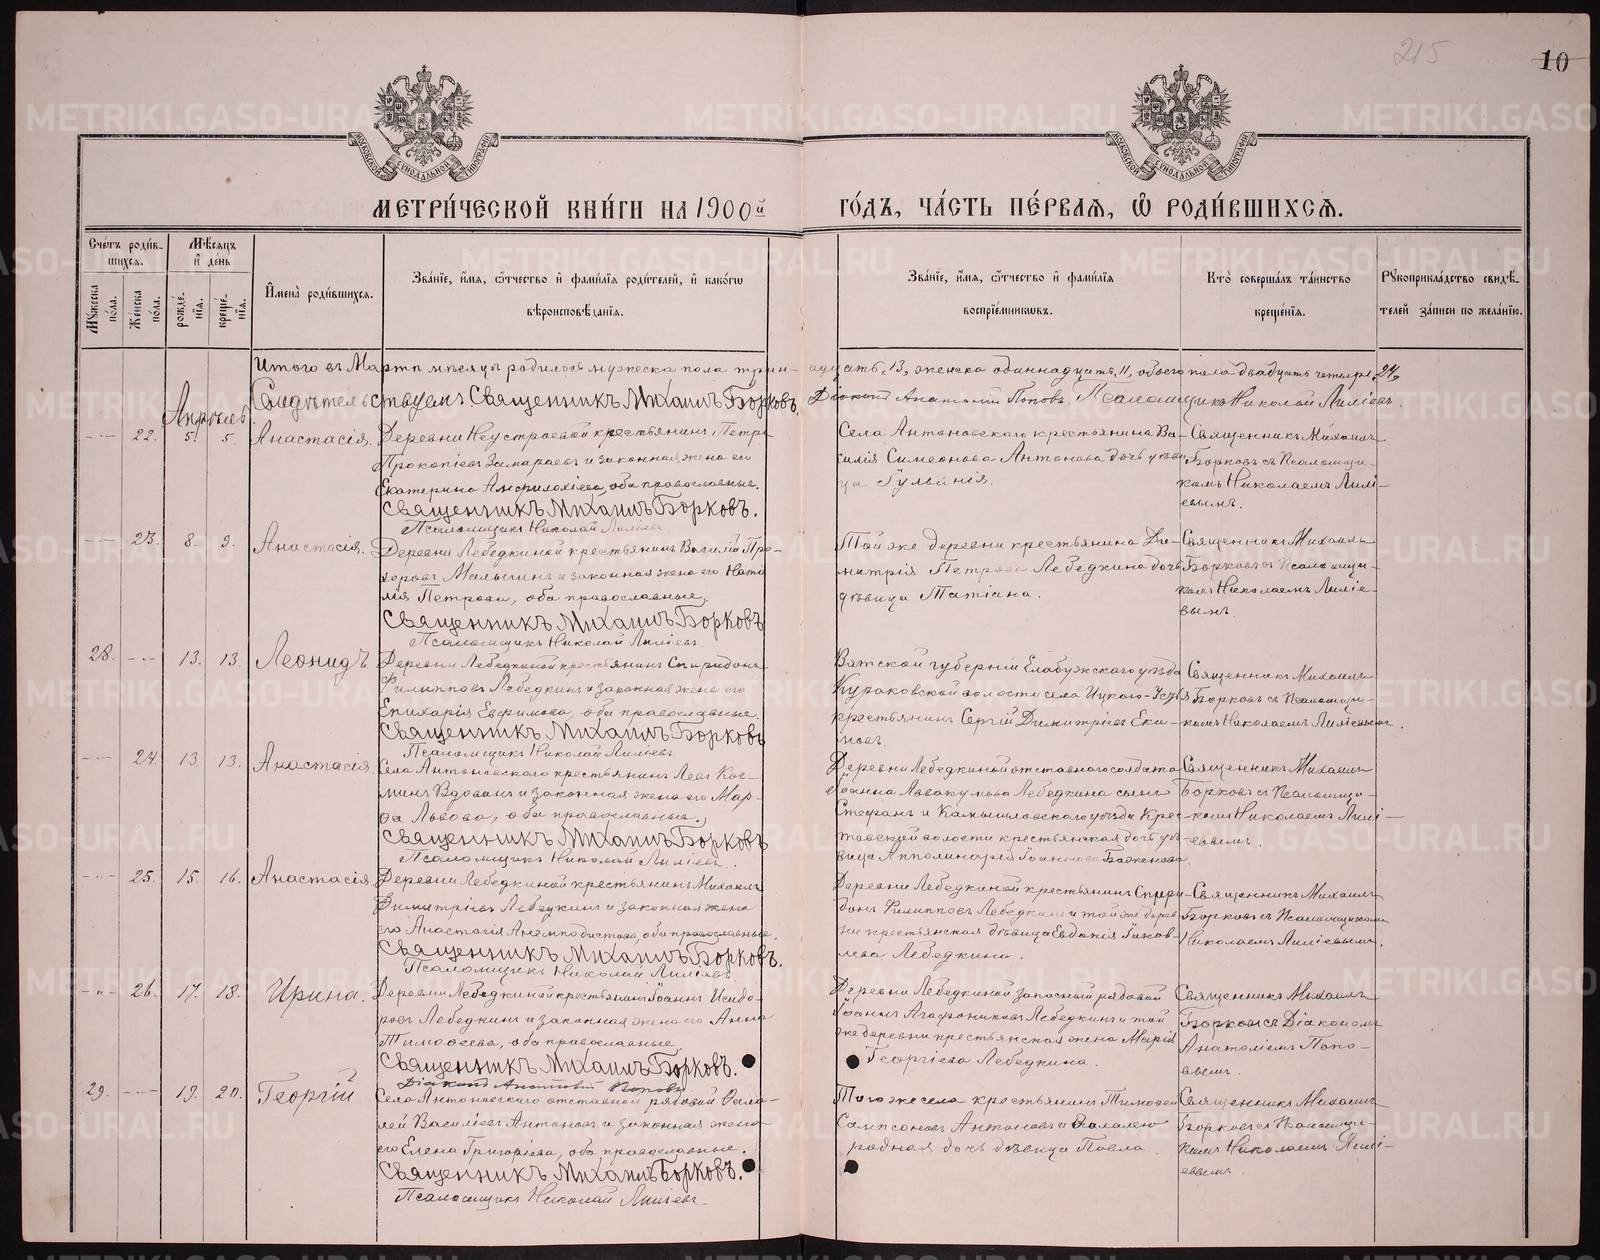 215
10
МЕТРИ́ЧЕСКОЙ КНИ́ГИ НА 1900й
ГО́ДЪ, ЧА́СТЬ ПЕ́РВАЯ, Ѡ РОДИ́ВШИХСЯ.
Сче́тъ роди́в-
шихся.
Мѣ́сяцъ
и де́нь
Имена̀ роди́вшихся.
Зва́нїе, и́мя, ѻ́тчество и фами́лїя роди́телей, и како́гѡ
вѣроисповѣ́данїя.
Зва́нїе, и́мя, ѻ́тчество и фами́лїя
воспрїе́мниковъ.
Кто̀ соверша́лъ та́инство
креще́нїя.
Рꙋкоприкла́дство свидѣ́-
телей за́писи по жела́нїю.
Мꙋ́жеска по́ла.
Же́нска по́ла.
рожде́нїя.
креще́нїя.
Итого въ Мартѣ мѣсяцѣ родилось мужеска пола трин-
адцать 13, женска одиннадцать 11, обоего пола двадцать четыре 24,
Свидѣтельствуемъ Священникъ Михаилъ Борковъ,
Дiаконъ Анатолій Поповъ. Псаломщикъ Николай Лиліевъ.
Апрѣль
22. 5. 5. Анастасія.
Деревни Неустроевой крестьянинъ Петръ
Прокопіевъ Замараевъ и законная жена его
Екатерина Амфилохіева, оба православные.
Священникъ Михаилъ Борковъ.
Псаломщикъ Николай Лиліевъ
Села Антоновскаго крестьянина Ва-
силія Симеонова Антонова дочь дѣви
ца
Священникъ Михаилъ
Борковъ съ Псаломщи-
комъ Николаемъ Лилі-
евымъ.
23. 8. 9. Анастасія.
Деревни Лебедкиной крестьянинъ Василій Про-
хоровъ Малыгинъ и законная жена его Ната
лія Петрова, оба православные.
Священникъ Михаилъ Борковъ
Псаломщикъ Николай Лиліевъ
Той же деревни крестьянина Ди-
митрія Петрова Лебедкина дочь
дѣвица Татіана.
Священникъ Михаилъ
Борковъ съ Псаломщи-
комъ Николаемъ Лиліе-
вымъ.
28. 13. 13. Леонидъ.
Деревни Лебедкиной крестьянинъ Спиридонъ
Филипповъ Лебедкинъ и законная жена его
Епихарія Евфимова, оба православные.
Священникъ Михаилъ Борковъ
Псаломщикъ Николай Лиліевъ
Вятской губерніи Елабужскаго уѣзда
Кураковской волости села
крестьянинъ Сергій Димитріевъ Еки-
мовъ.
Священникъ Михаилъ
Борковъ съ Псаломщи-
комъ Николаемъ Лиліевымъ.
24. 13. 13. Анастасія.
Села Антоновскаго крестьянинъ Левъ Кос-
минъ Вдовинъ и законная жена его Мар-
ѳа Львова, оба православные.
Священникъ Михаилъ Борковъ
Псаломщикъ Николай Лиліевъ.
Деревни Лебедкиной отставнаго солдата
Іоанна Аввакумова Лебедкина сынъ
Стефанъ и Камышловскаго уѣзда Крес-
товской волости крестьянская дочь дѣ-
вица Апполинарія Іоаннова Баженова.
Священникъ Михаилъ
Борковъ съ Псаломщи-
комъ Николаемъ Лилі-
евымъ.
25. 15. 16. Анастасія
Деревни Лебедкиной крестьянинъ Михаилъ
Димитріевъ Лебедкинъ и законная жена
его Анастасія Анемподистова, оба православные.
Священникъ Михаилъ Борковъ.
Псаломщикъ Николай Лиліевъ
Деревни Лебедкиной крестьянинъ Спири-
донъ Филипповъ Лебедкинъ и той же дерев
ни крестьянская дѣвица Евдокія Іаков-
лева Лебедкина.
Священникъ Михаилъ
Борковъ съ Псаломщикомъ
Николаемъ Лиліевымъ.
26. 17. 18. Ирина.
Деревни Лебедкиной крестьянинъ Іоаннъ Исидо-
ровъ Лебедкинъ и законная жена его Анна
Тимоѳеева, оба православные
Священникъ Михаилъ Борковъ.
Діаконъ Анатолій Поповъ
Деревни Лебедкиной запасный рядовой
Іоаннъ Агафониковъ Лебедкинъ и той
же деревни крестьянская жена Марія
Георгіева Лебедкина.
Священникъ Михаилъ
Борковъ съ Діакономъ
Анатоліемъ Попо-
вымъ.
29. 19. 20. Георгій
Села Антоновскаго отставной рядовой
Василіевъ Антоновъ и законная жена
его Елена Григоріева, оба православные.
Священникъ Михаилъ Борковъ.
Псаломщикъ Николай Лиліевъ
Того же села крестьянинъ Тимоѳей
Сампсоновъ Антоновъ и
родная дочь дѣвица Павла.
Священникъ Михаилъ
Борковъ съ Псаломщи-
комъ Николаемъ Лилі-
евымъ.
METRIKI.GASO-URAL.RU